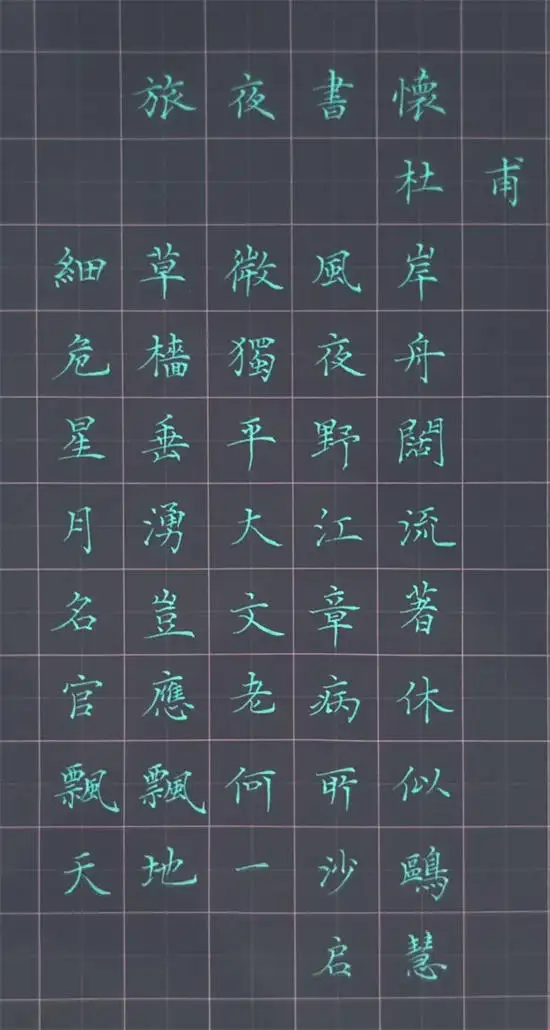 旅夜書懷
杜甫
細草微風岸
危檣獨夜舟
星垂平野闊
月湧大江流
名豈文章著
官應老病休
飄飄何所似
天地一沙鷗
启慧